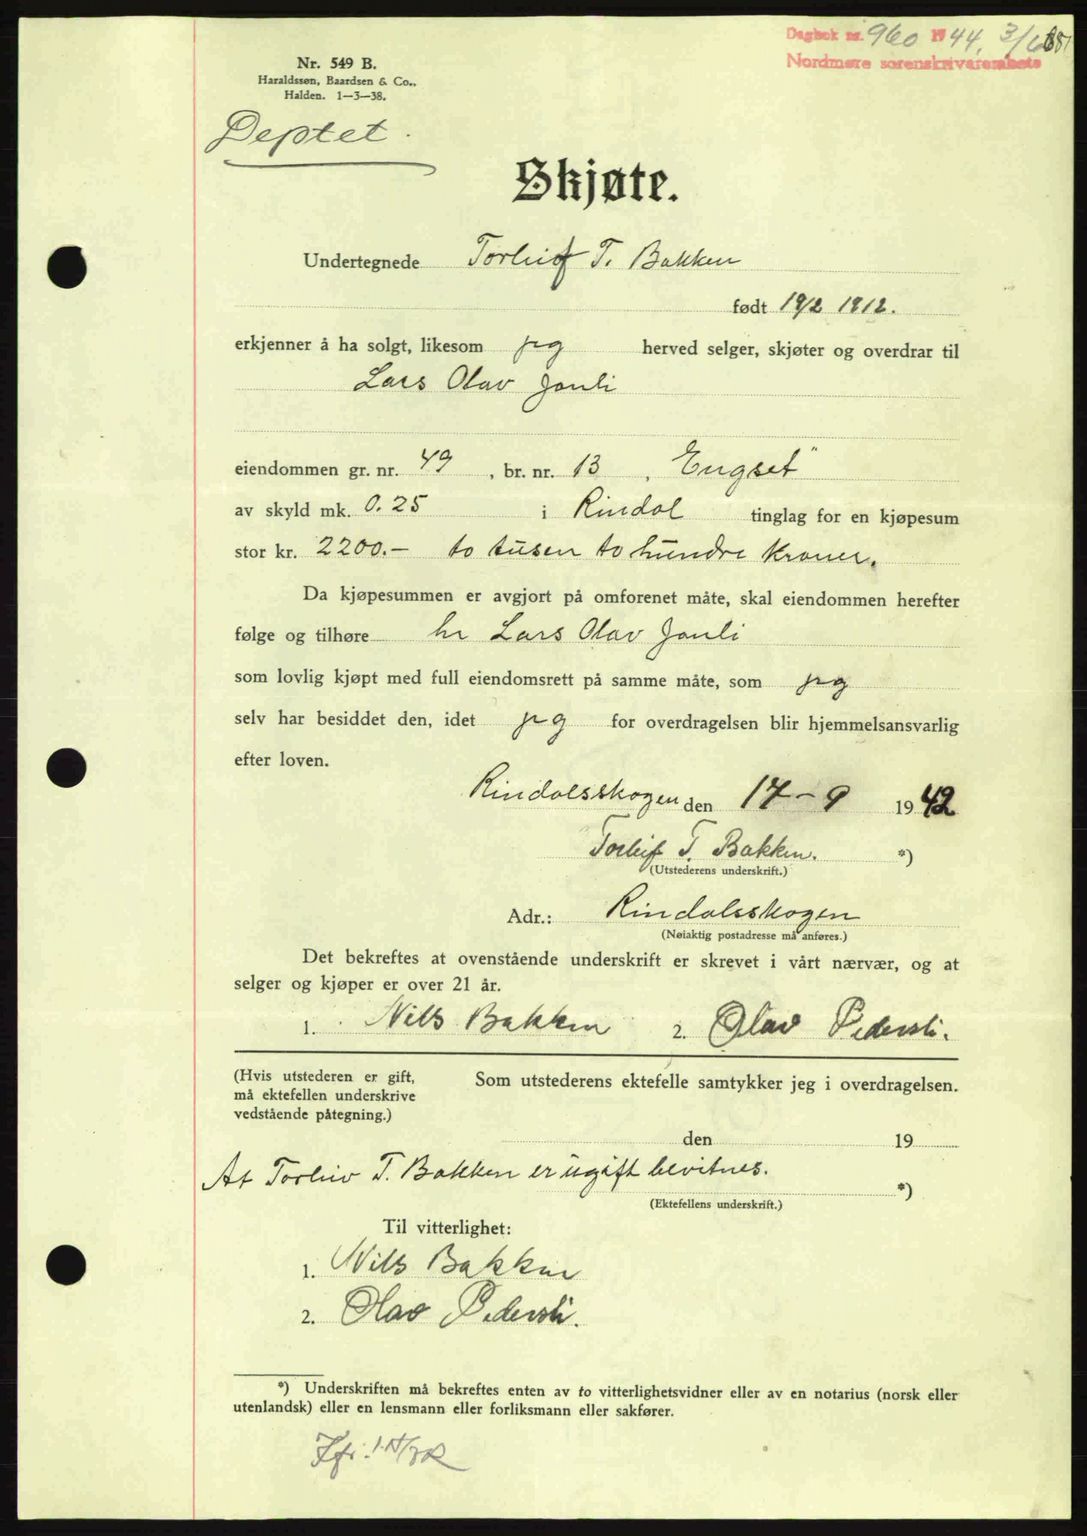 Dagbok nr. 960 1944, 3/6
Nordmøre sorenskriverembete
Nr. 549 B.
Haraldssøn, Baardsen & Co.,
Halden. 1—3—38.
Deptet.
Skjøte.
Undertegnede Torleif T. Bakken
født 19/2 1912.
erkjenner å ha solgt, likesom jeg herved selger, skjøter og overdrar til
Lars Olav Janli
eiendommen gr. nr. 49, br. nr. 13, „Engset"
av skyld mk. 0.25 i Rindal tinglag for en kjøpesum
stor kr. 2200.- to tusen to hundre kroner.
Da kjøpesummen er avgjort på omforenet måte, skal eiendommen herefter
følge og tilhøre hr Lars Olav Janli
som lovlig kjøpt med full eiendomsrett på samme måte, som jeg
selv har besiddet den, idet jeg for overdragelsen blir hjemmelsansvarlig
efter loven.
Rindalsskogen den 17-9 1942
Torleif T. Bakken. *)
(Utstederens underskrift.)
Adr.: Rindalsskogen
(Nøiaktig postadresse må anføres.)
Det bekreftes at ovenstående underskrift er skrevet i vårt nærvær, og at
selger og kjøper er over 21 år.
1. Nils Bakken 2. Olav Pedersli.
(Hvis utstederen er gift, Som utstederens ektefelle samtykker jeg i overdragelsen.
må ektefellen underskrive
vedstående påtegning.)
den 19
At Torleiv T. Bakken er ugift bevitnes. *)
(Ektefellens underskrift.)
Til vitterlighet:
1. Nils Bakken
2. Olav Pedersli.
*) Underskriften må bekreftes enten av to vitterlighetsvidner eller av en notarius (norsk eller
utenlandsk) eller en lensmann eller forliksmann eller sakfører.